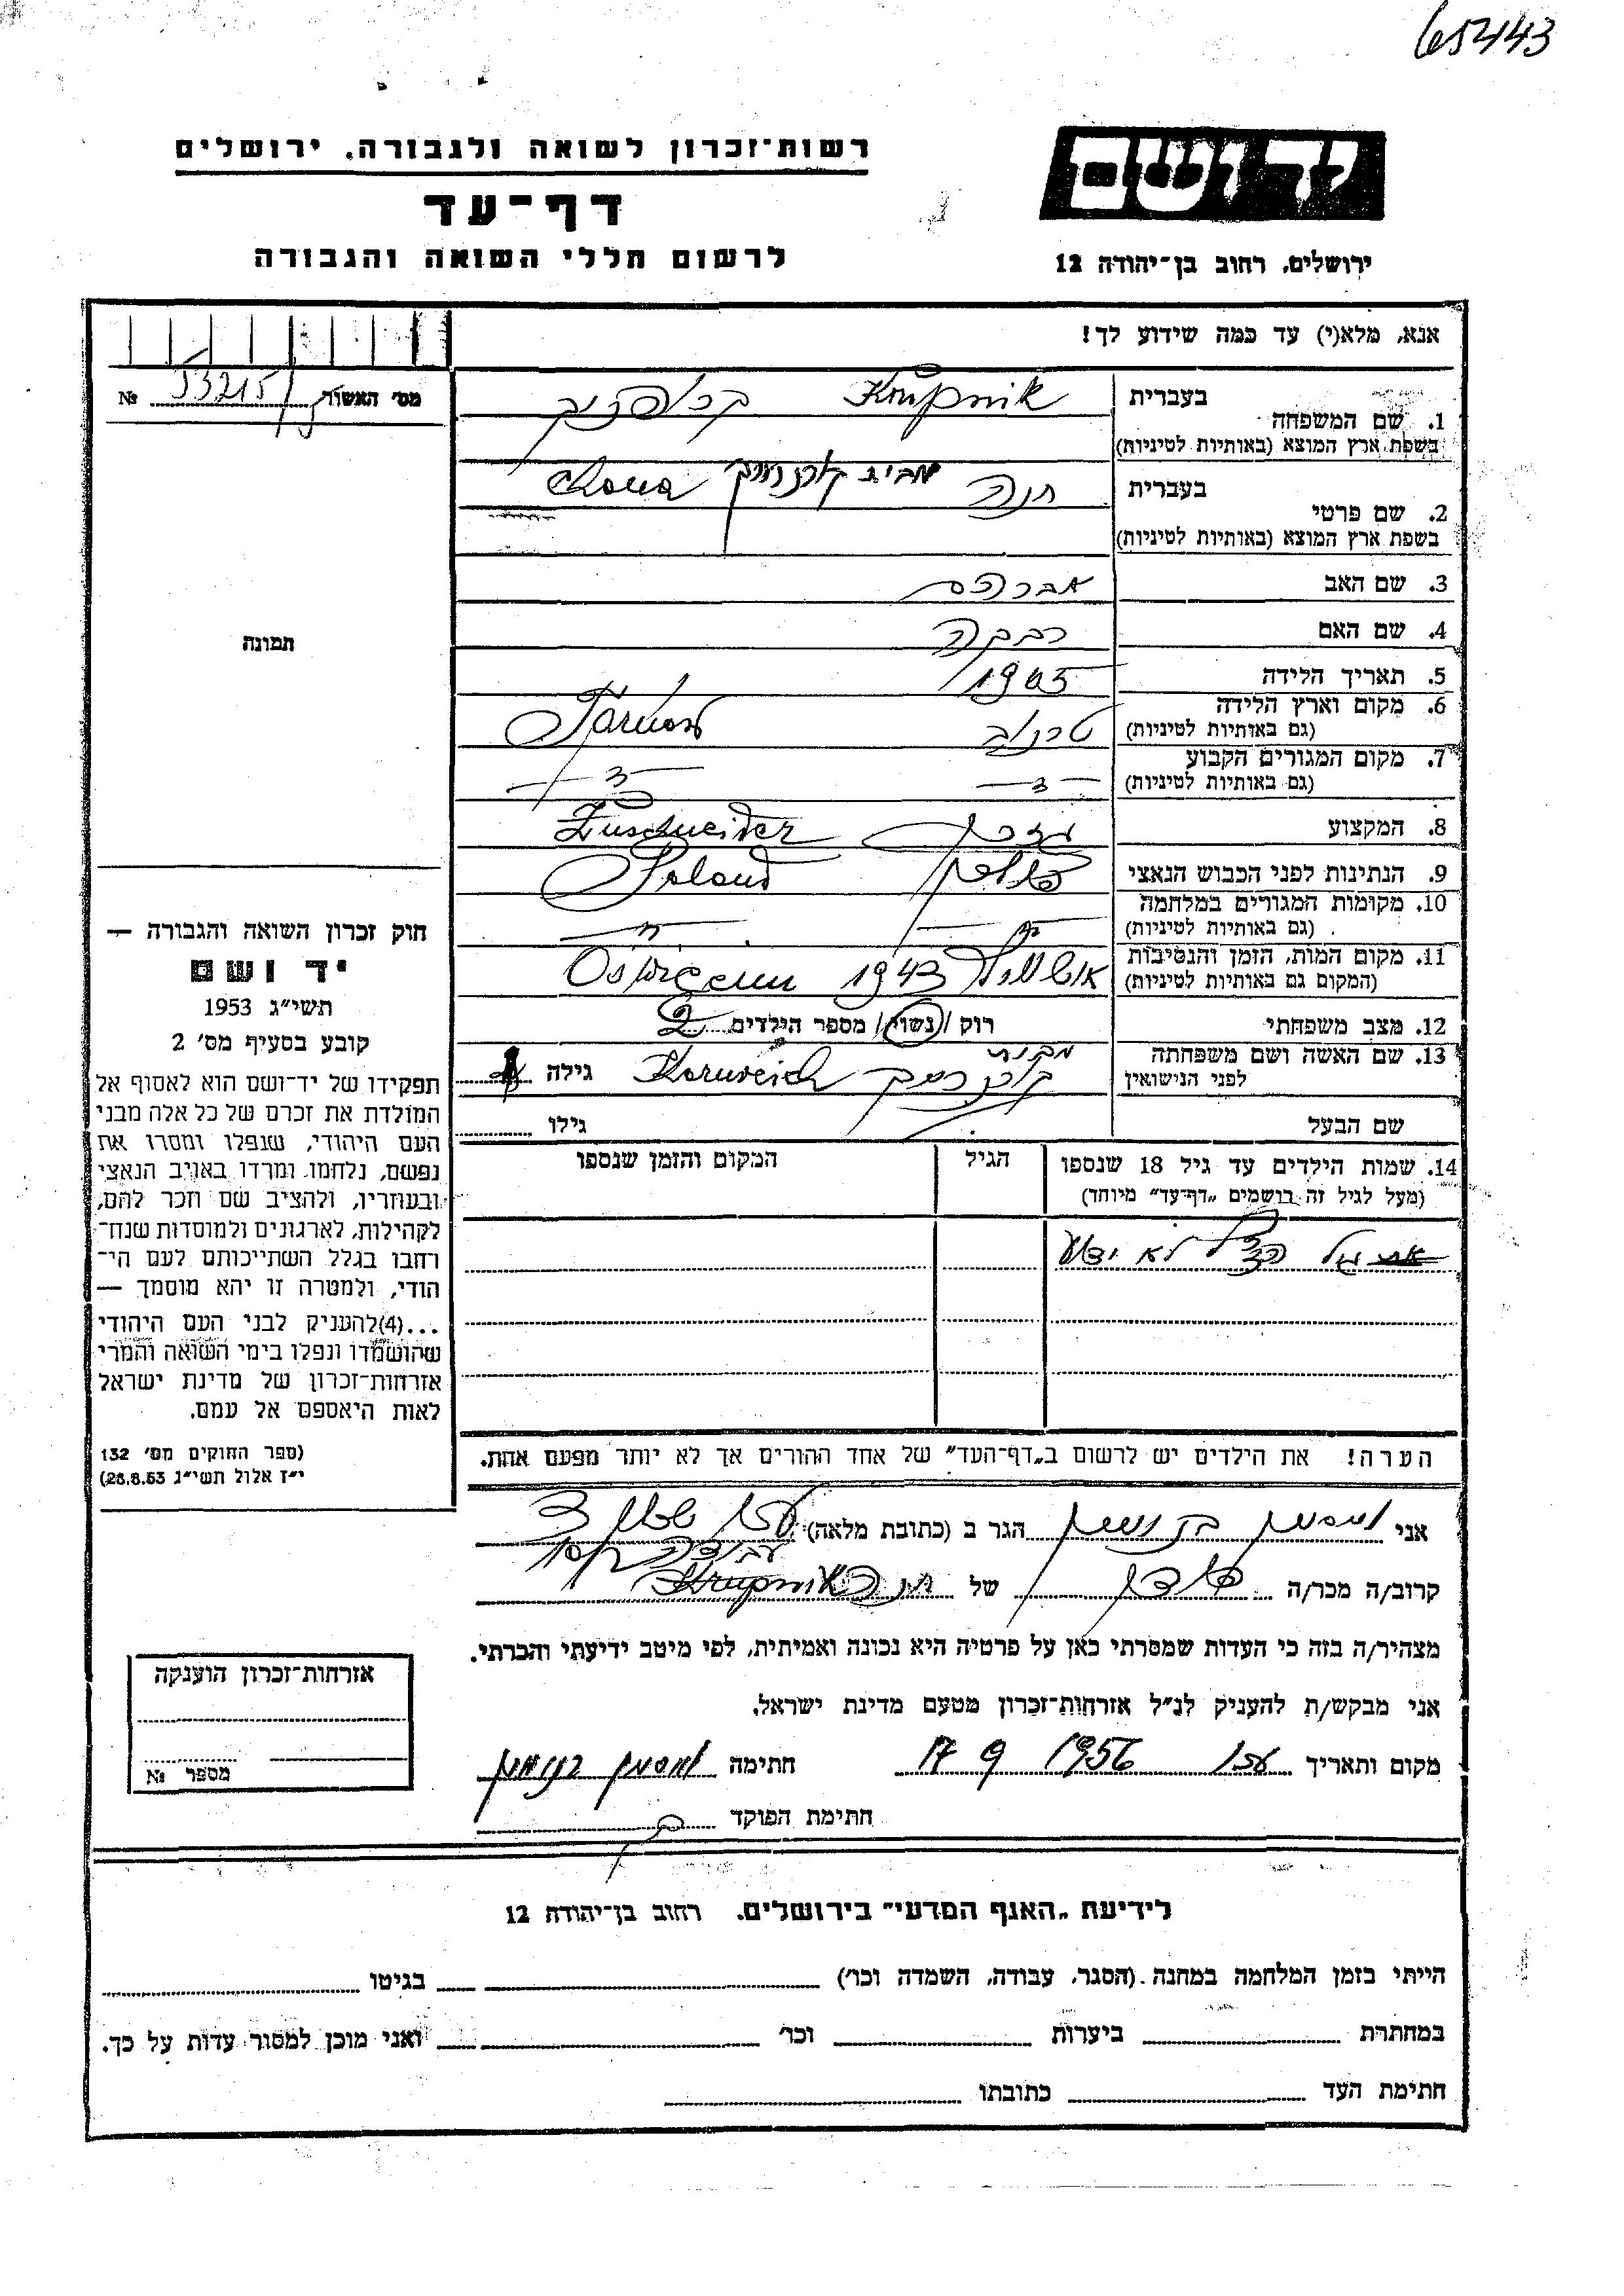 65443
רשות־זכרון לשואה ולגבורה, ירושלים
דף־עד
לרשום חללי השואה והגבורה
יד ושם
ירושלים, רחוב בן־יהודה 12
אנא, מלא(י) עד כמה שידוע לך!
מס' האשור 53215 №
בעברית Krupnik קרופניק
1. שם המשפחה
בשפת ארץ המוצא (באותיות לטיניות)
בעברית חנה מבית Chana
2. שם פרטי
בשפת ארץ המוצא (באותיות לטיניות)
3. שם האב אברהם
4. שם האם רבקה
5. תאריך הלידה 1905
6. מקום וארץ הלידה טרנוב Tarnow
(גם באותיות לטיניות)
7. מקום המגורים הקבוע
(גם באותיות לטיניות)
8. המקצוע Zuschneider
9. הנתינות לפני הכבוש הנאצי Poland
10. מקומות המגורים במלחמה
(גם באותיות לטיניות)
11. מקום המות, הזמן והנסיבות 1943
(המקום גם באותיות לטיניות)
12. מצב משפחתי רוק / נשוי / מספר הילדים 2
13. שם האשה ושם משפחתה מבית
לפני הנישואין Kornreich גילה
שם הבעל גילו
14. שמות הילדים עד גיל 18 שנספו הגיל המקום והזמן שנספו
(מעל לגיל זה רושמים „דף־עד" מיוחד)
גיל לא ידוע
הערה! את הילדים יש לרשום ב„דף־העד" של אחד ההורים אך לא יותר מפעם אחת.
תמונה
חוק זכרון השואה והגבורה —
יד ושם
תשי״ג 1953
קובע בסעיף מס' 2
תפקידו של יד־ושם הוא לאסוף אל
המולדת את זכרם של כל אלה מבני
העם היהודי, שנפלו ומסרו את
נפשם, נלחמו ומרדו באויב הנאצי
ובעוזריו, ולהציב שם וזכר להם,
לקהילות, לארגונים ולמוסדות שנח־
רחבו בגלל השתייכותם לעם הי־
הודי, ולמטרה זו יהא מוסמך —
...(4) להעניק לבני העם היהודי
שהושמדו ונפלו בימי השואה והמרי
אזרחות־זכרון של מדינת ישראל
לאות היאספם אל עמם.
(ספר החוקים מס' 132
י״ז אלול תשי״ג 28.8.53)
אני הגר ב (כתובת מלאה)
קרוב/ה מכר/ה של חנה Krupnik
מצהיר/ה בזה כי העדות שמסרתי כאן על פרטיה היא נכונה ואמיתית, לפי מיטב ידיעתי והכרתי.
אני מבקש/ת להעניק לנ״ל אזרחות־זכרון מטעם מדינת ישראל.
מקום ותאריך 17 9 1956 חתימה
חתימת הפוקד
אזרחות־זכרון הוענקה
מספר №
לידיעת „האגף המדעי" בירושלים, רחוב בן־יהודה 12
הייתי בזמן המלחמה במחנה (הסגר, עבודה, השמדה וכו') בגיטו
במחתרת ביערות וכו' ואני מוכן למסור עדות על כך.
חתימת העד כתובתו